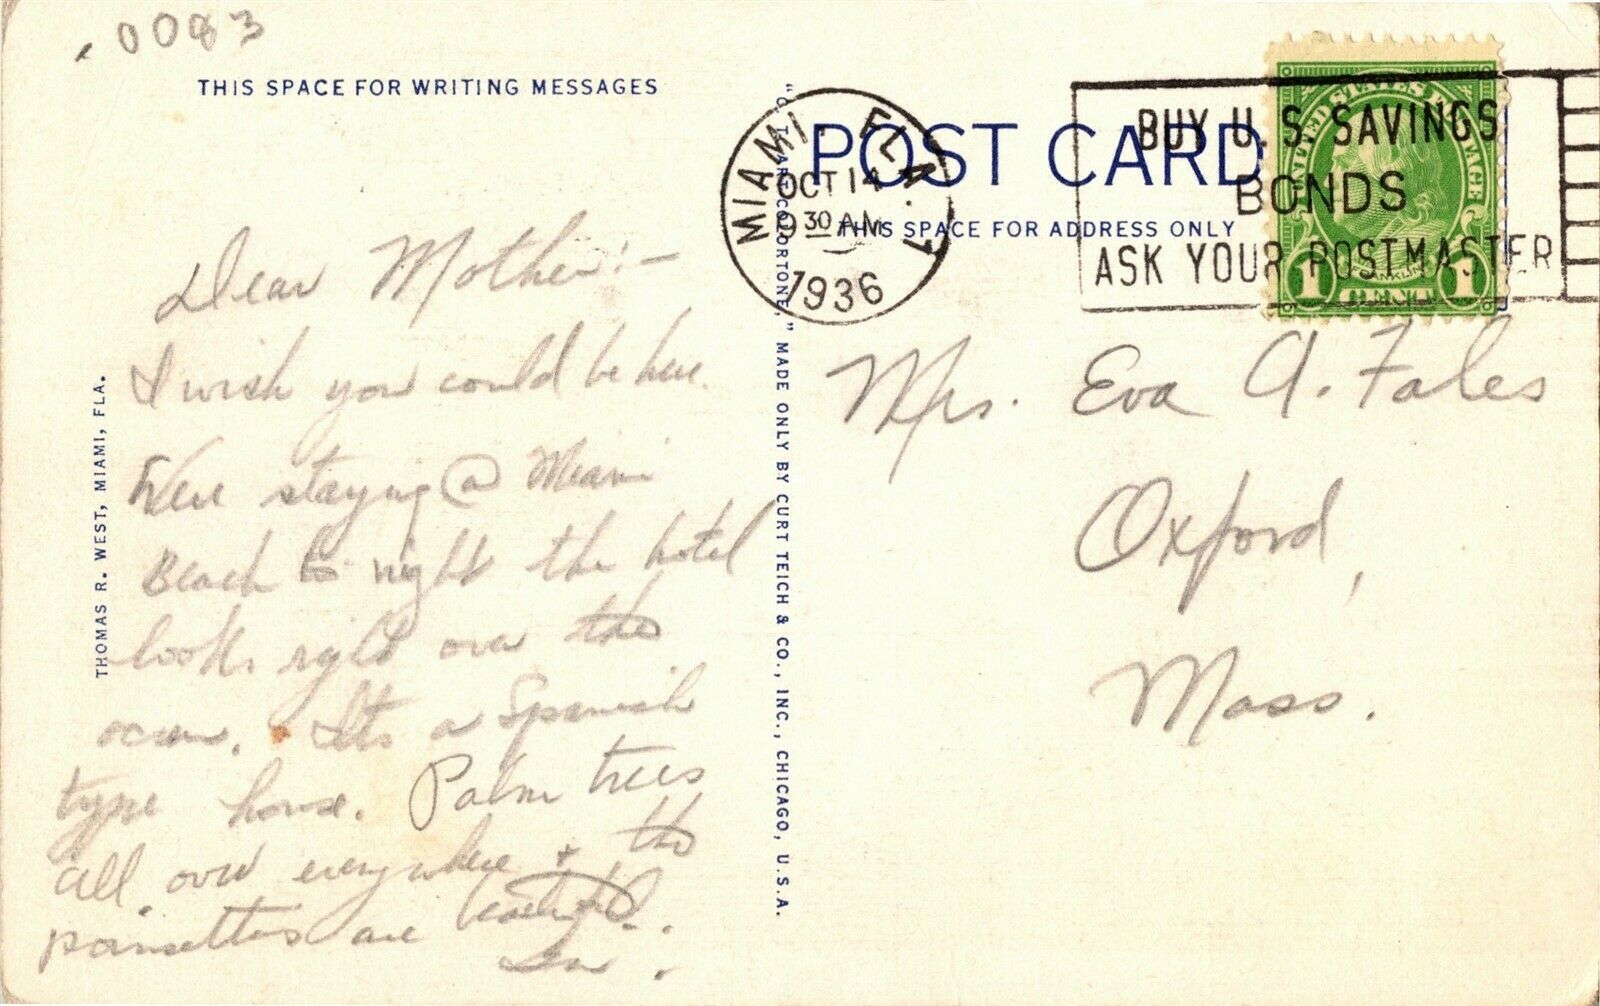 0083
THIS SPACE FOR WRITING MESSAGES
Dear Mother:-
I wish you could be here.
Were staying @ Miami
Beach to night the hotel
looks right over the
ocean. Its a Spanish
type house. Palm trees
all over everywhere + the
poinsettas are beautiful.
THOMAS R. WEST, MIAMI, FLA.
"C. T. ART-COLORTONE," MADE ONLY BY CURT TEICH & CO., INC., CHICAGO, U.S.A.
MIAMI, FLA. 1
OCT 14
9 30 AM
1936
POST CARD
THIS SPACE FOR ADDRESS ONLY
BUY U. S. SAVINGS
BONDS
ASK YOUR POSTMASTER
UNITED STATES POSTAGE
FRANKLIN
1 CENT 1
Mrs. Eva A. Fales
Oxford,
Mass.